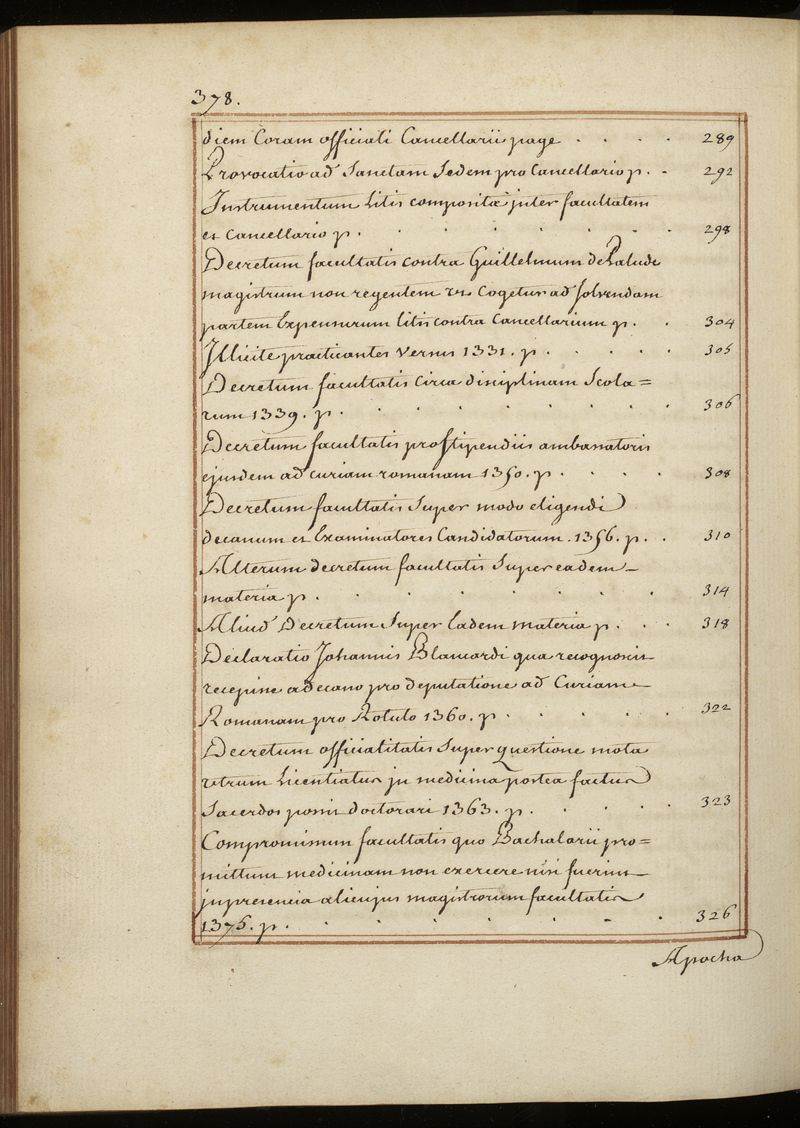 378.
diem Coram officiali Cancellarii page . . . . 289
Provocatio ad Sanctam Sedem pro Cancellario p. . 292
Instrumentum Litis compositæ inter facultatem
et Cancellario p . . . . . . . 298
Decretum facultatis contra Guillelmum de Palude
magistrum non regentem Cogetur ad Solvendam
partem Expensurum litis contra Cancellarium p. . 304
Illicite practicantes Versus 1331. p . . . . . 305
Decretum facultatis Circa disciplinam Scola=
rum 1339. p . . . . . . . 306
Decretum facultatis pro Stipendiis ambassatoris
ejusdem ad curiam romanam 1350. p . . . . 308
Decretum facultatis Super modo eligendi
decanum et Examinatores Candidatorum. 1356. p. . 310
Alterum decretum facultatis Super eadem
materia p . . . . . . . 314
Aliud Decretum Super Eadem Materia p . . . 318
Declaratio Johannis Blancardi qua recognoscit
recepisse a decano pro deputatione ad Curiam
Romanam pro Rotulo 1360. p . . . . . 322
Decretum officialitatis Super questione mota
utrum Licentiatus in medicina postea factus
Sacerdos possit doctorari 1363. p . . . . . 323
Compromissum facultatis quo Bachalarii pro=
mittunt medicinam non exercere nisi fuerint
in presencia alicujus magistrorum facultatis
1375. p . . . . . . . 326
Apocha